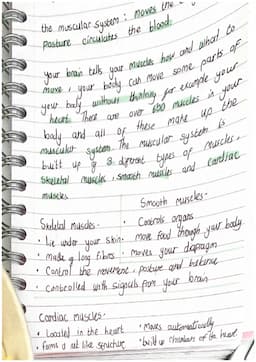 the muscular system : moves the
posture circulates the blood.
your brain tells your muscles how and what to
move, your body can move some parts of
your body without thinking for example your
heart. There are over 600 muscles in your
body and all of these make up the
muscular system. The muscular system is
built up of 3 different types of muscles,
Skeletal muscles, smooth muscles and cardiac
muscles
Skeletal muscles -
• lie under your skin.
• made of long fibres
• Control the movement, posture and balance
• controlled with signals from your brain
Smooth muscles -
• Controls organs
move food through your body
• moves your diaphragm
Cardiac muscles -
• Located in the heart
• forms a net like structure
• moves automatically
• build up chambers of the heart